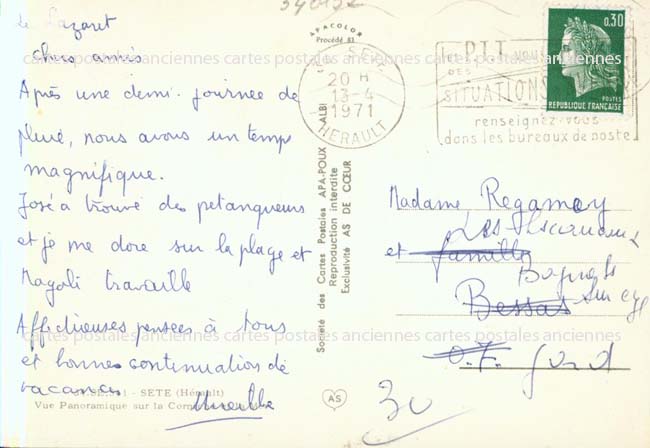 Le Lazaret
chers amis
Après une demi-journée de
pluie, nous avons un temps
magnifique.
José a trouvé des petanqueurs
et je me dore sur la plage et
Magali travaille
Affectueuses pensées à tous
et bonnes continuation de
vacances
Mireille
SETE (Hérault)
Vue Panoramique sur la
APACOLOR
Procédé 83
Société des Cartes Postales APA-POUX - ALBI
Reproduction interdite
Exclusivité AS DE CŒUR
AS
SETE
20 H
13-4
1971
HERAULT
les P.T.T. vous
DES
SITUATIONS
renseignez-vous
dans les bureaux de poste
0,30
POSTES
REPUBLIQUE FRANÇAISE
Madame Regamey
Les
et famille
Bagnols
Bessas sur Cèze
Gard
30
cartes postales anciennes cartes postales anciennes cartes postales anciennes
cartes postales anciennes cartes postales anciennes cartes postales anciennes